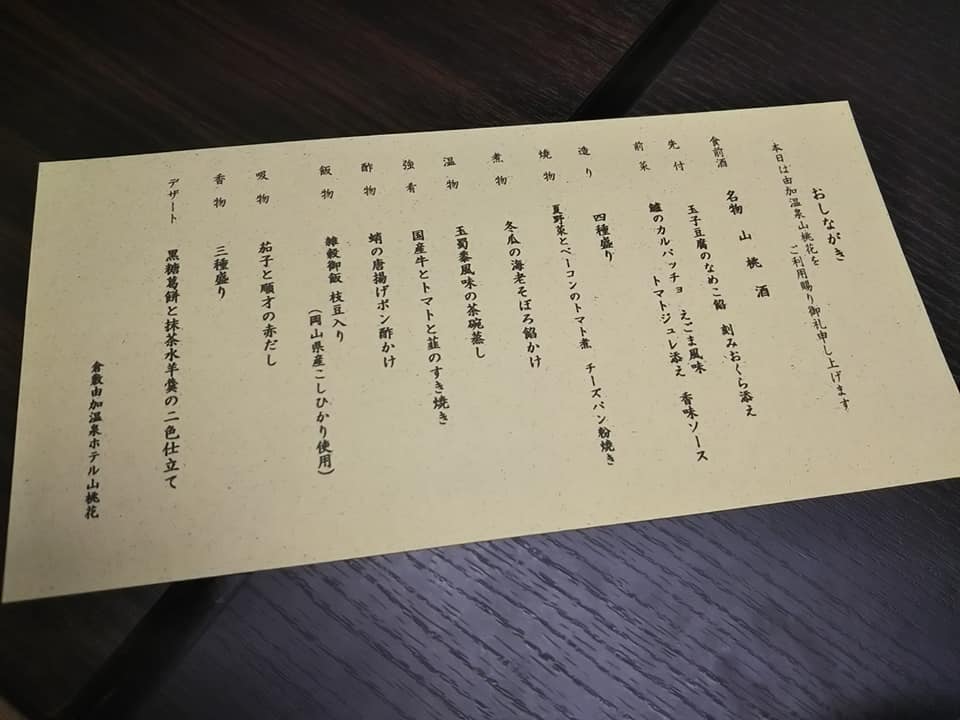 おしながき
本日は由加温泉山桃花を
ご利用賜り御礼申し上げます
食前酒 名物 山桃酒
先付 玉子豆腐のなめこ餡 刻みおくら添え
前菜 鱸のカルパッチョ えごま風味 香味ソース
トマトジュレ添え
造り 四種盛り
焼物 夏野菜とベーコンのトマト煮 チーズパン粉焼き
煮物 冬瓜の海老そぼろ餡かけ
温物 玉蜀黍風味の茶碗蒸し
強肴 国産牛とトマトと韮のすき焼き
酢物 蛸の唐揚げポン酢かけ
飯物 雑穀御飯 枝豆入り
(岡山県産こしひかり使用)
吸物 茄子と順才の赤だし
香物 三種盛り
デザート 黒糖葛餅と抹茶水羊羹の二色仕立て
倉敷由加温泉ホテル山桃花